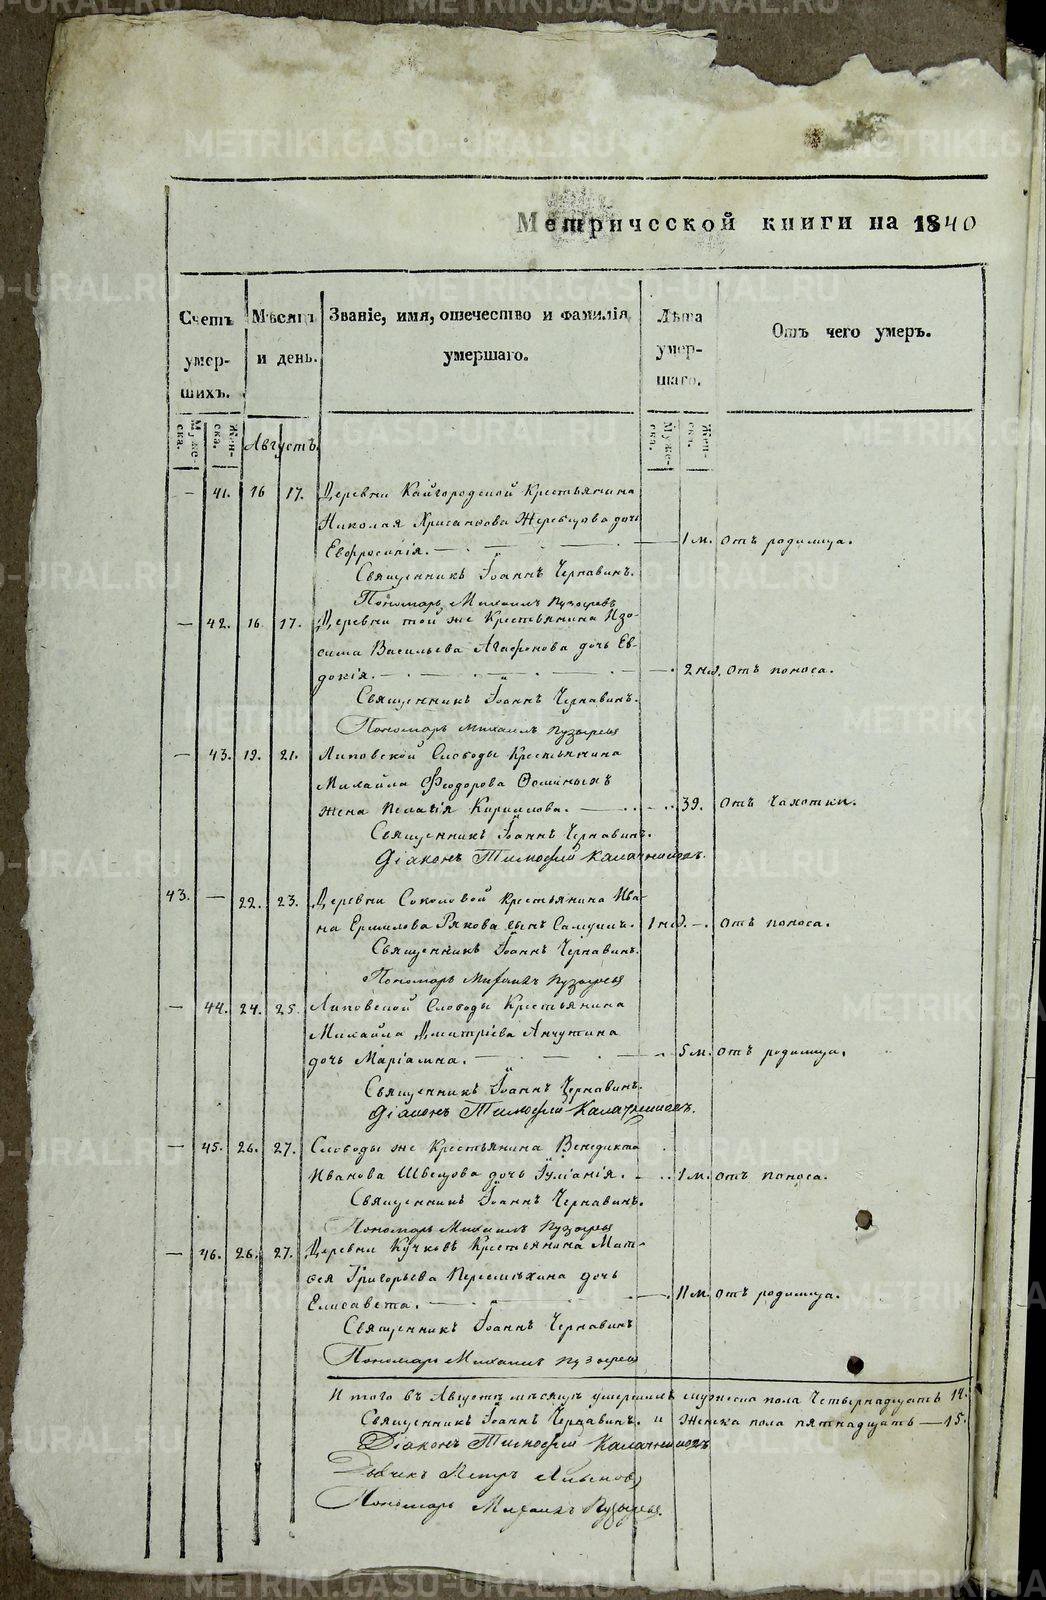 Метрической книги на 1840
Счетъ умер-шихъ.
Муже-ска.
Жен-ска.
Мѣсяцъ и день.
Августъ.
Званіе, имя, отечество и фамилія умершаго.
Лѣта умер-шаго.
Муже-ска.
Жен-ска.
Отъ чего умеръ.
— 41. 16 17. Деревни Кайгородской Крестьянина
Николая Хрисанѳова Жеребцова дочь
Евфросинія. — 1 м. отъ родимца.
Священникъ Іоаннъ Чернавинъ.
Пономарь Михаилъ Пузыревъ
— 42. 16. 17. Деревни той же Крестьянина Изо-
сима Васильева Агафонова дочь Ев-
докія. — 2 нед. отъ поноса.
Священникъ Іоаннъ Чернавинъ.
Пономарь Михаилъ Пузыревъ
— 43. 19. 21. Липовской Слободы Крестьянина
Михайла Феодорова Осминыхъ
жена Пелагія Кирилова. — 39. отъ чахотки.
Священникъ Іоаннъ Чернавинъ.
Діаконъ Тимофей Калачниковъ.
43. — 22. 23. Деревни Соколовой Крестьянина Ива-
на Ермилова Рякова сынъ Самуилъ. 1 нед. — отъ поноса.
Священникъ Іоаннъ Чернавинъ.
Пономарь Михаилъ Пузыревъ
— 44. 24. 25. Липовской Слободы Крестьянина
Михайла Дмитріева Анчутина
дочь Маріамна. — 5 м. отъ родимца.
Священникъ Іоаннъ Чернавинъ.
Діаконъ Тимофей Калачниковъ.
— 45. 26. 27. Слободы же Крестьянина Венедикта
Иванова Швецова дочь Іуліанія. — 1 м. отъ поноса.
Священникъ Іоаннъ Чернавинъ.
Пономарь Михаилъ Пузыревъ
— 46. 26. 27. Деревни Кучковъ Крестьянина Мат-
ѳея Григорьева Пересмѣхина дочь
Елисавета. — 11 м. отъ родимца.
Священникъ Іоаннъ Чернавинъ
Пономарь Михаилъ Пузыревъ
Итого въ Августѣ мѣсяцѣ умершихъ мужеска пола Четырнадцать 14.
Священникъ Іоаннъ Чернавинъ. и Женска пола пятнадцать — 15.
Діаконъ Тимофей Калачниковъ
Дьячекъ Петръ
Пономарь Михаилъ Пузыревъ.
METRIKI.GASO-URAL.RU